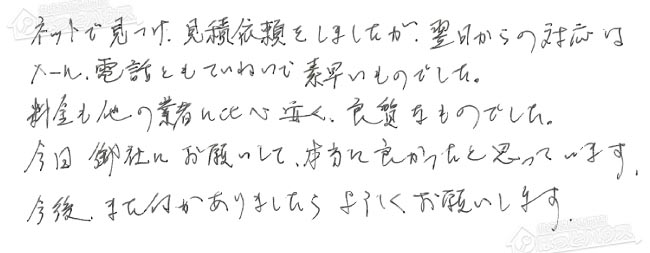 ネットで見つけ、見積依頼をしましたが、翌日からの対応は
メール、電話ともていねいで素早いものでした。
料金も他の業者に比べ安く、良質なものでした。
今回御社にお願いして、本当に良かったと思っています。
今後、また何かありましたらよろしくお願いします。